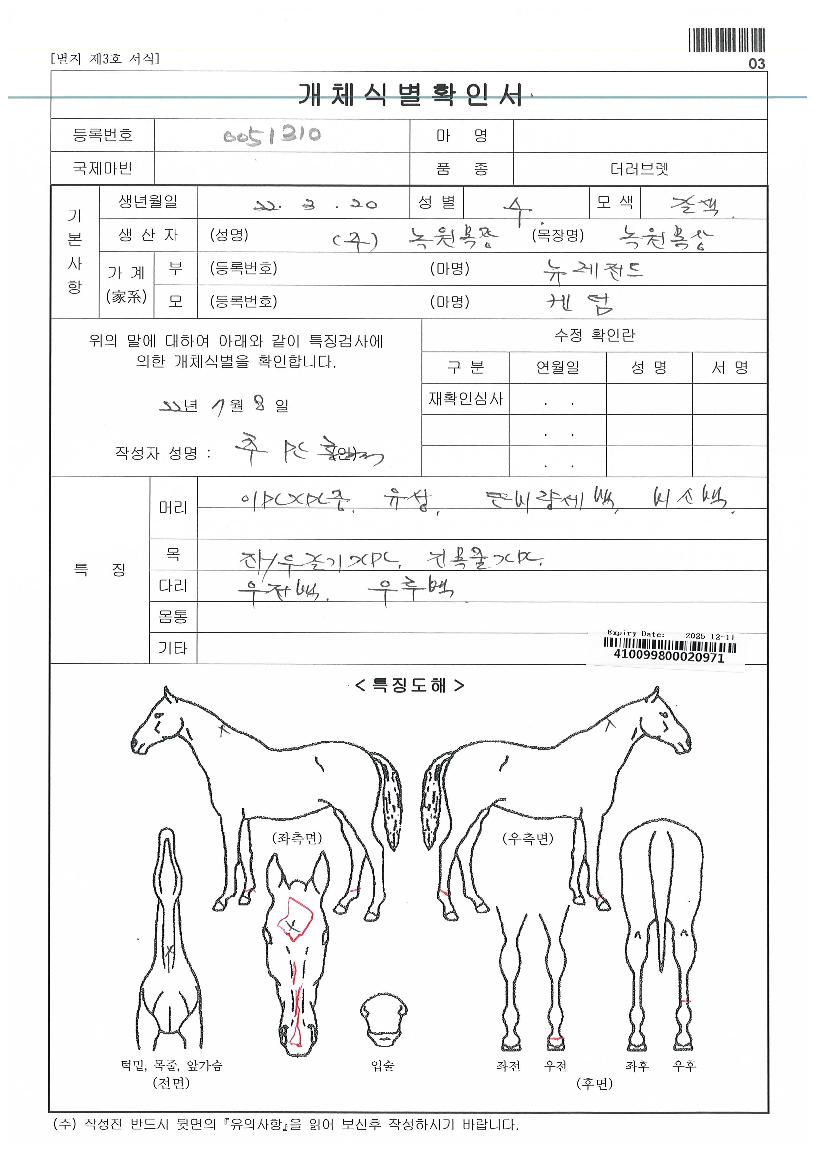 [별지 제3호 서식]
03
개체식별확인서
등록번호 0051310 마 명
국제마번 품 종 더러브렛
기본사항
생년월일 22. 3. 20 성별 수 모색 갈색.
생산자 (성명) (주) 녹원목장 (목장명) 녹원목장
가계 (家系) 부 (등록번호) (마명) 뉴레전드
모 (등록번호) (마명)
위의 말에 대하여 아래와 같이 특징검사에
의한 개체식별을 확인합니다.
22년 7월 8일
작성자 성명 :
수정 확인란
구 분 연월일 성 명 서 명
재확인심사 . .
. .
. .
특 징
머리 유성, 비소백.
목
다리 우전백, 우후백.
몸통
기타
Expiry Date: 2025-12-11
410099800020971
<특징도해>
(좌측면) (우측면)
턱밑, 목줄, 앞가슴 입술 좌전 우전 좌후 우후
(전면) (후면)
(수) 작성전 반드시 뒷면의 『유의사항』을 읽어 보신후 작성하시기 바랍니다.